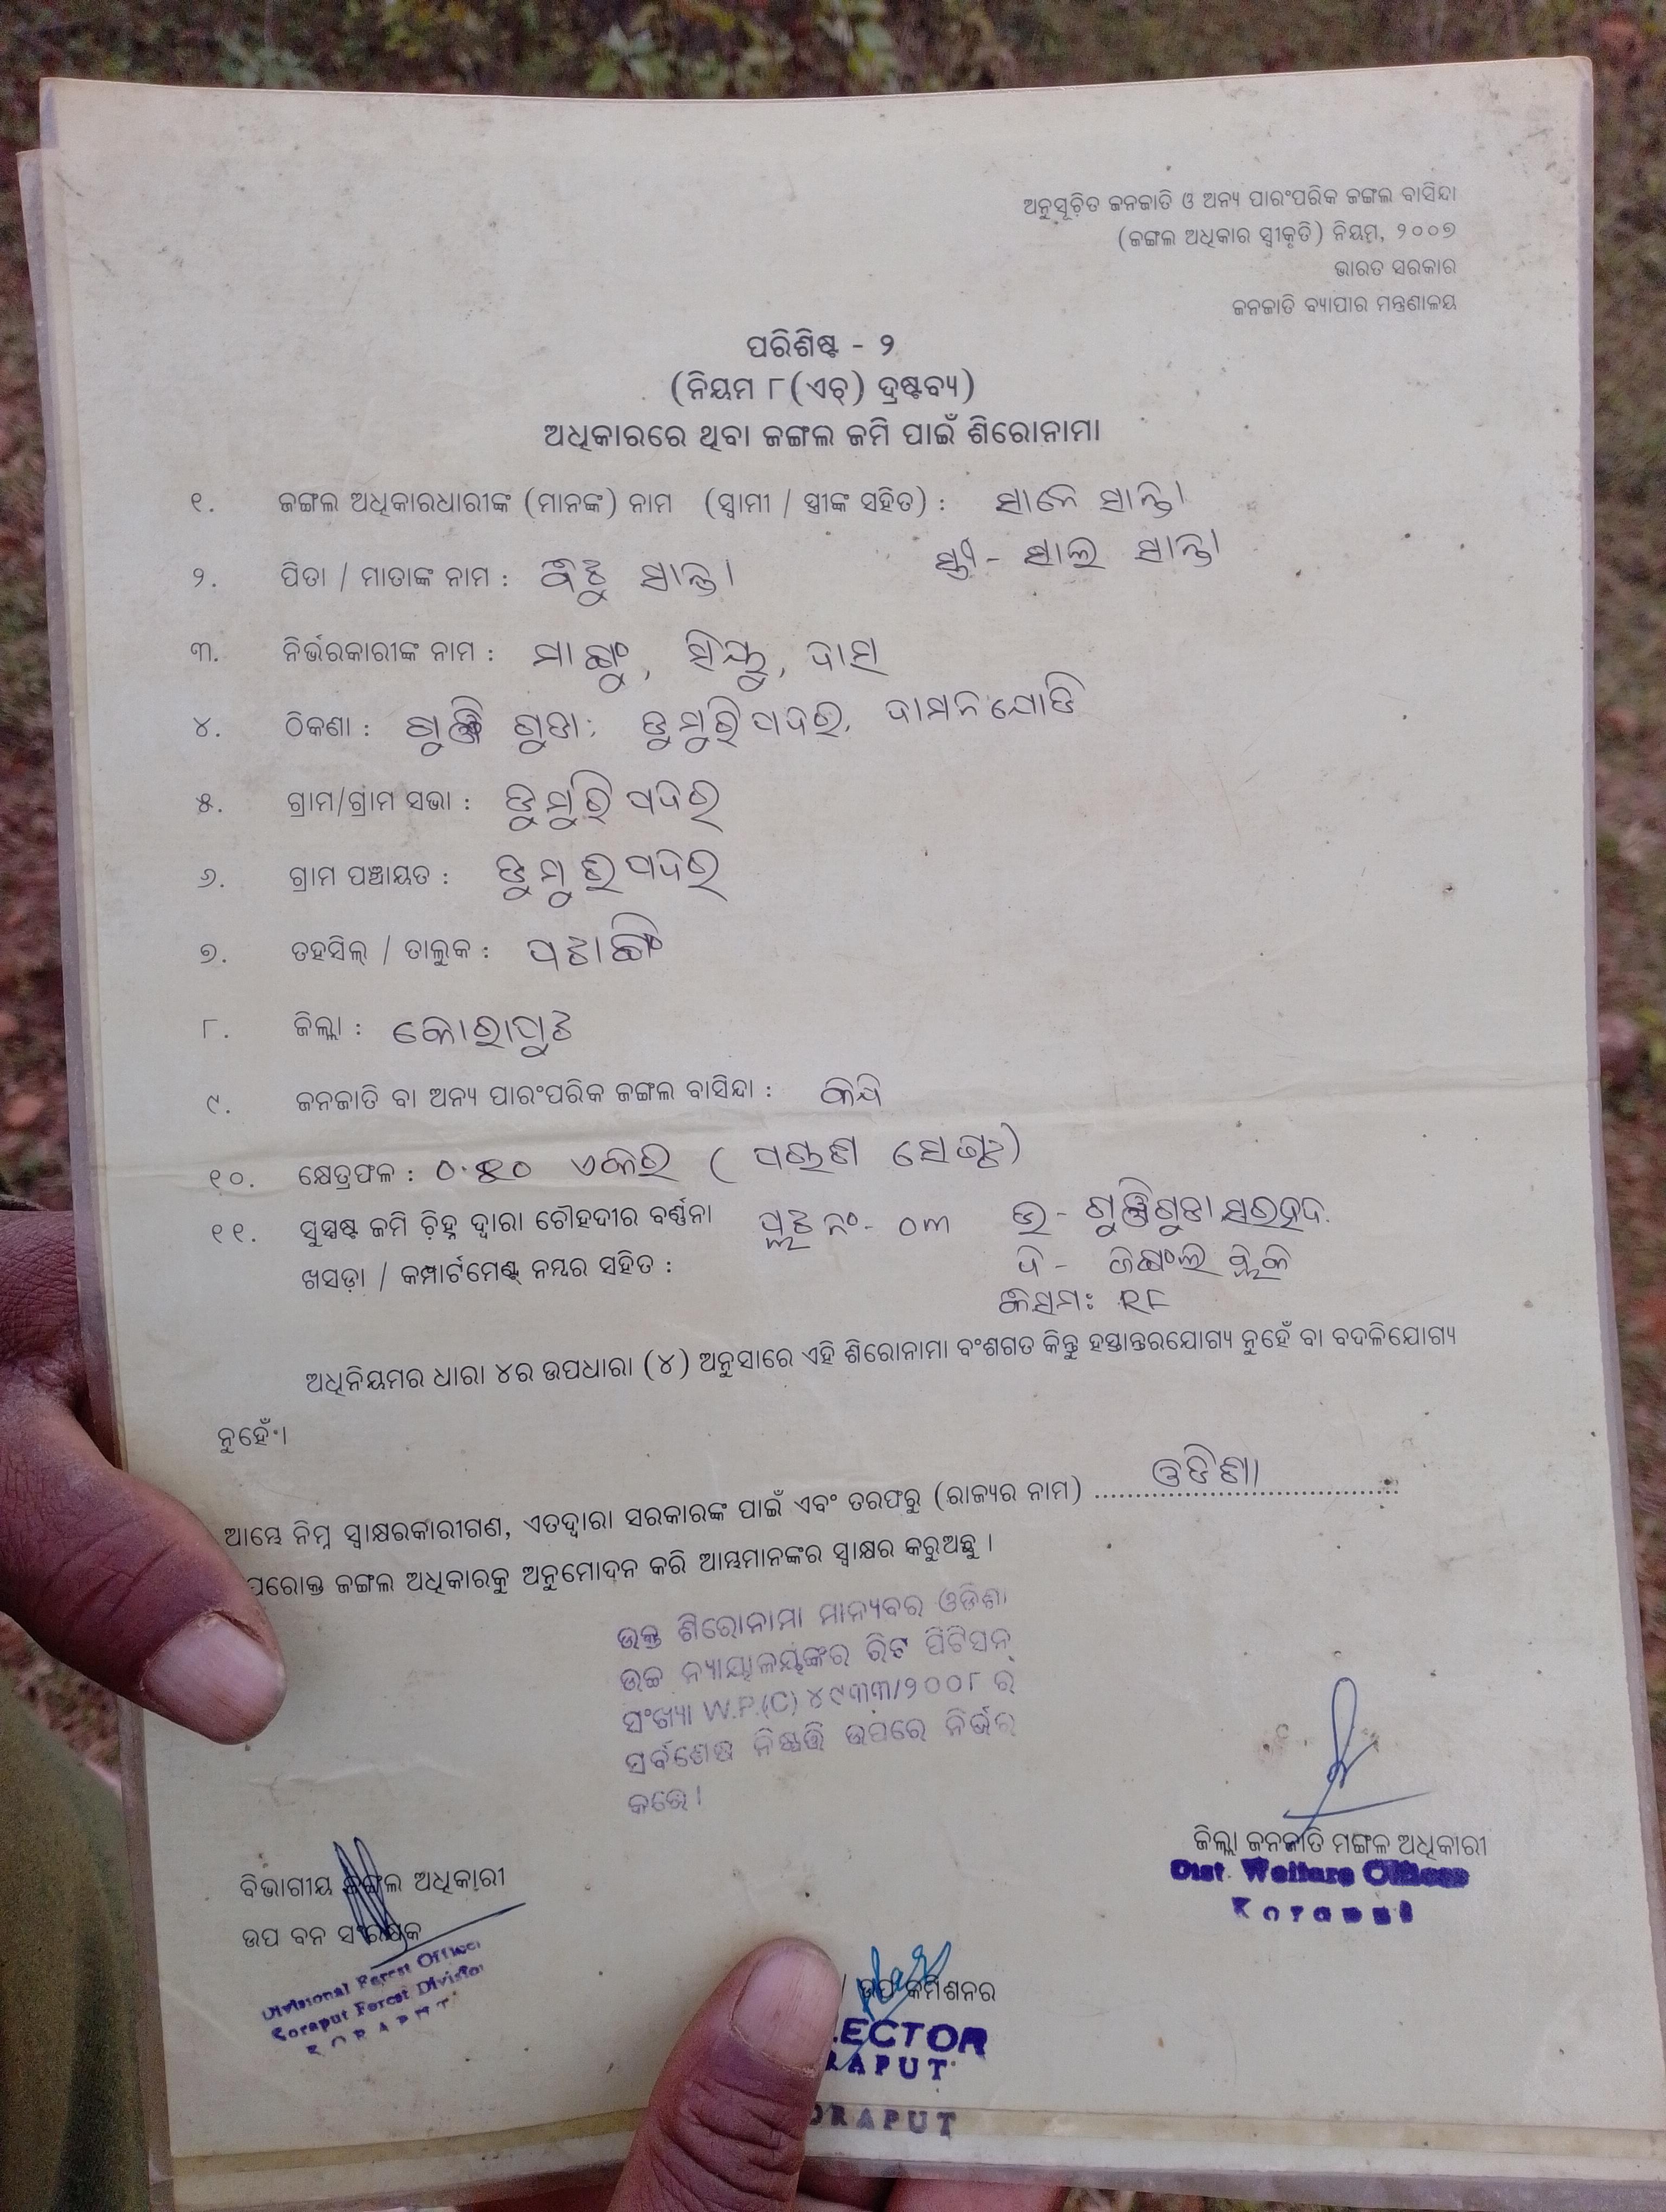 ଅନୁସୂଚିତ ଜନଜାତି ଓ ଅନ୍ୟ ପାରଂପରିକ ଜଙ୍ଗଲ ବାସିନ୍ଦା
(ଜଙ୍ଗଲ ଅଧିକାର ସ୍ୱୀକୃତି) ନିୟମ, ୨୦୦୭
ଭାରତ ସରକାର
ଜନଜାତି ବ୍ୟାପାର ମନ୍ତ୍ରଣାଳୟ
ପରିଶିଷ୍ଟ - ୨
(ନିୟମ ୮(ଏଚ୍) ଦ୍ରଷ୍ଟବ୍ୟ)
ଅଧିକାରରେ ଥିବା ଜଙ୍ଗଲ ଜମି ପାଇଁ ଶିରୋନାମା
୧. ଜଙ୍ଗଲ ଅଧିକାରଧାରୀଙ୍କ (ମାନଙ୍କ) ନାମ (ସ୍ୱାମୀ / ସ୍ତ୍ରୀଙ୍କ ସହିତ) : ସାନେ ସାନ୍ତା
ସ୍ତ୍ରୀ - ସାଲ ସାନ୍ତା
୨. ପିତା / ମାତାଙ୍କ ନାମ : ସାନ୍ତା
୩. ନିର୍ଭରକାରୀଙ୍କ ନାମ :
୪. ଠିକଣା : ଗୁଡା, ଡୁମୁରିପଦର, ଦାମନଯୋଡି
୫. ଗ୍ରାମ/ଗ୍ରାମ ସଭା : ଡୁମୁରିପଦର
୬. ଗ୍ରାମ ପଞ୍ଚାୟତ : ଡୁମୁରିପଦର
୭. ତହସିଲ୍ / ତାଲୁକ : ପଟାଙ୍ଗି
୮. ଜିଲ୍ଲା : କୋରାପୁଟ
୯. ଜନଜାତି ବା ଅନ୍ୟ ପାରଂପରିକ ଜଙ୍ଗଲ ବାସିନ୍ଦା :
୧୦. କ୍ଷେତ୍ରଫଳ : ୦.୫୦ ଏକର (ପଚାଶ ସେଣ୍ଟ)
୧୧. ସୁସ୍ପଷ୍ଟ ଜମି ଚିହ୍ନ ଦ୍ୱାରା ଚୌହଦୀର ବର୍ଣ୍ଣନା ପ୍ଲଟ ନଂ- ୦୩ ଉ - ଗୁଡା ସରହଦ
ଖସଡ଼ା / କମ୍ପାର୍ଟମେଣ୍ଟ୍ ନମ୍ବର ସହିତ : ଦି - ଜଙ୍ଗଲ
କିସମ: RF
ଅଧିନିୟମର ଧାରା ୪ର ଉପଧାରା (୪) ଅନୁସାରେ ଏହି ଶିରୋନାମା ବଂଶଗତ କିନ୍ତୁ ହସ୍ତାନ୍ତରଯୋଗ୍ୟ ନୁହେଁ ବା ବଦଳିଯୋଗ୍ୟ
ନୁହେଁ।
ଆମ୍ଭେ ନିମ୍ନ ସ୍ୱାକ୍ଷରକାରୀଗଣ, ଏତଦ୍ୱାରା ସରକାରଙ୍କ ପାଇଁ ଏବଂ ତରଫରୁ (ରାଜ୍ୟର ନାମ) ଓଡିଶା
ପରୋକ୍ତ ଜଙ୍ଗଲ ଅଧିକାରକୁ ଅନୁମୋଦନ କରି ଆମ୍ଭମାନଙ୍କର ସ୍ୱାକ୍ଷର କରୁଅଛୁ ।
ଉକ୍ତ ଶିରୋନାମା ମାନ୍ୟବର ଓଡିଶା
ଉଚ୍ଚ ନ୍ୟାୟାଳୟଙ୍କର ରିଟ ପିଟିସନ୍
ସଂଖ୍ୟା W.P.(C) ୪୯୩୩/୨୦୦୮ ର
ସର୍ବଶେଷ ନିଷ୍ପତ୍ତି ଉପରେ ନିର୍ଭର
କରେ।
ଜିଲ୍ଲା ଜନଜାତି ମଙ୍ଗଳ ଅଧିକାରୀ
Dist. Welfare Officer
Koraput
ବିଭାଗୀୟ ଜଙ୍ଗଲ ଅଧିକାରୀ
ଉପ ବନ ସଂରକ୍ଷକ
Divisional Forest Officer
Koraput Forest Division
KORAPUT
/ ଉପ କମିଶନର
LECTOR
RAPUT
ORAPUT